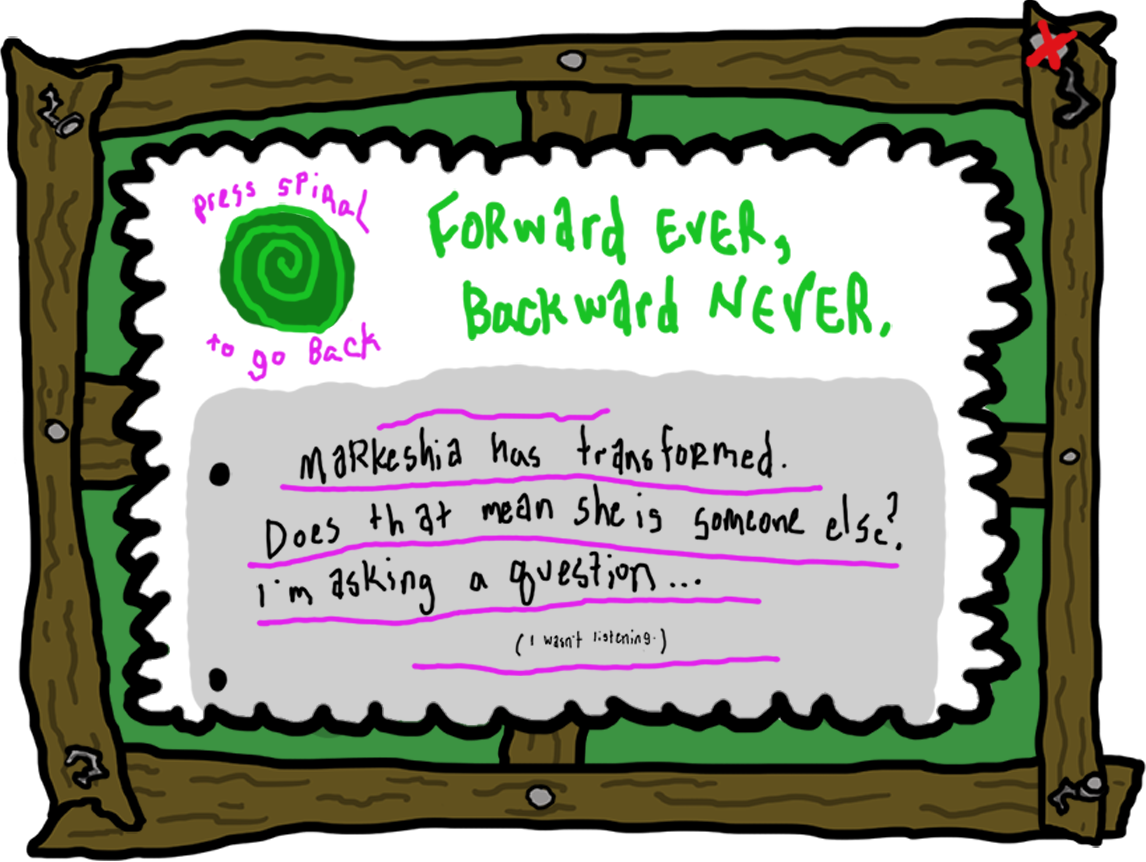 press spiral
to go Back
Forward Ever,
Backward Never.
Markeshia has transformed.
Does that mean she is someone else?
i'm asking a question...
(I wasn't listening.)